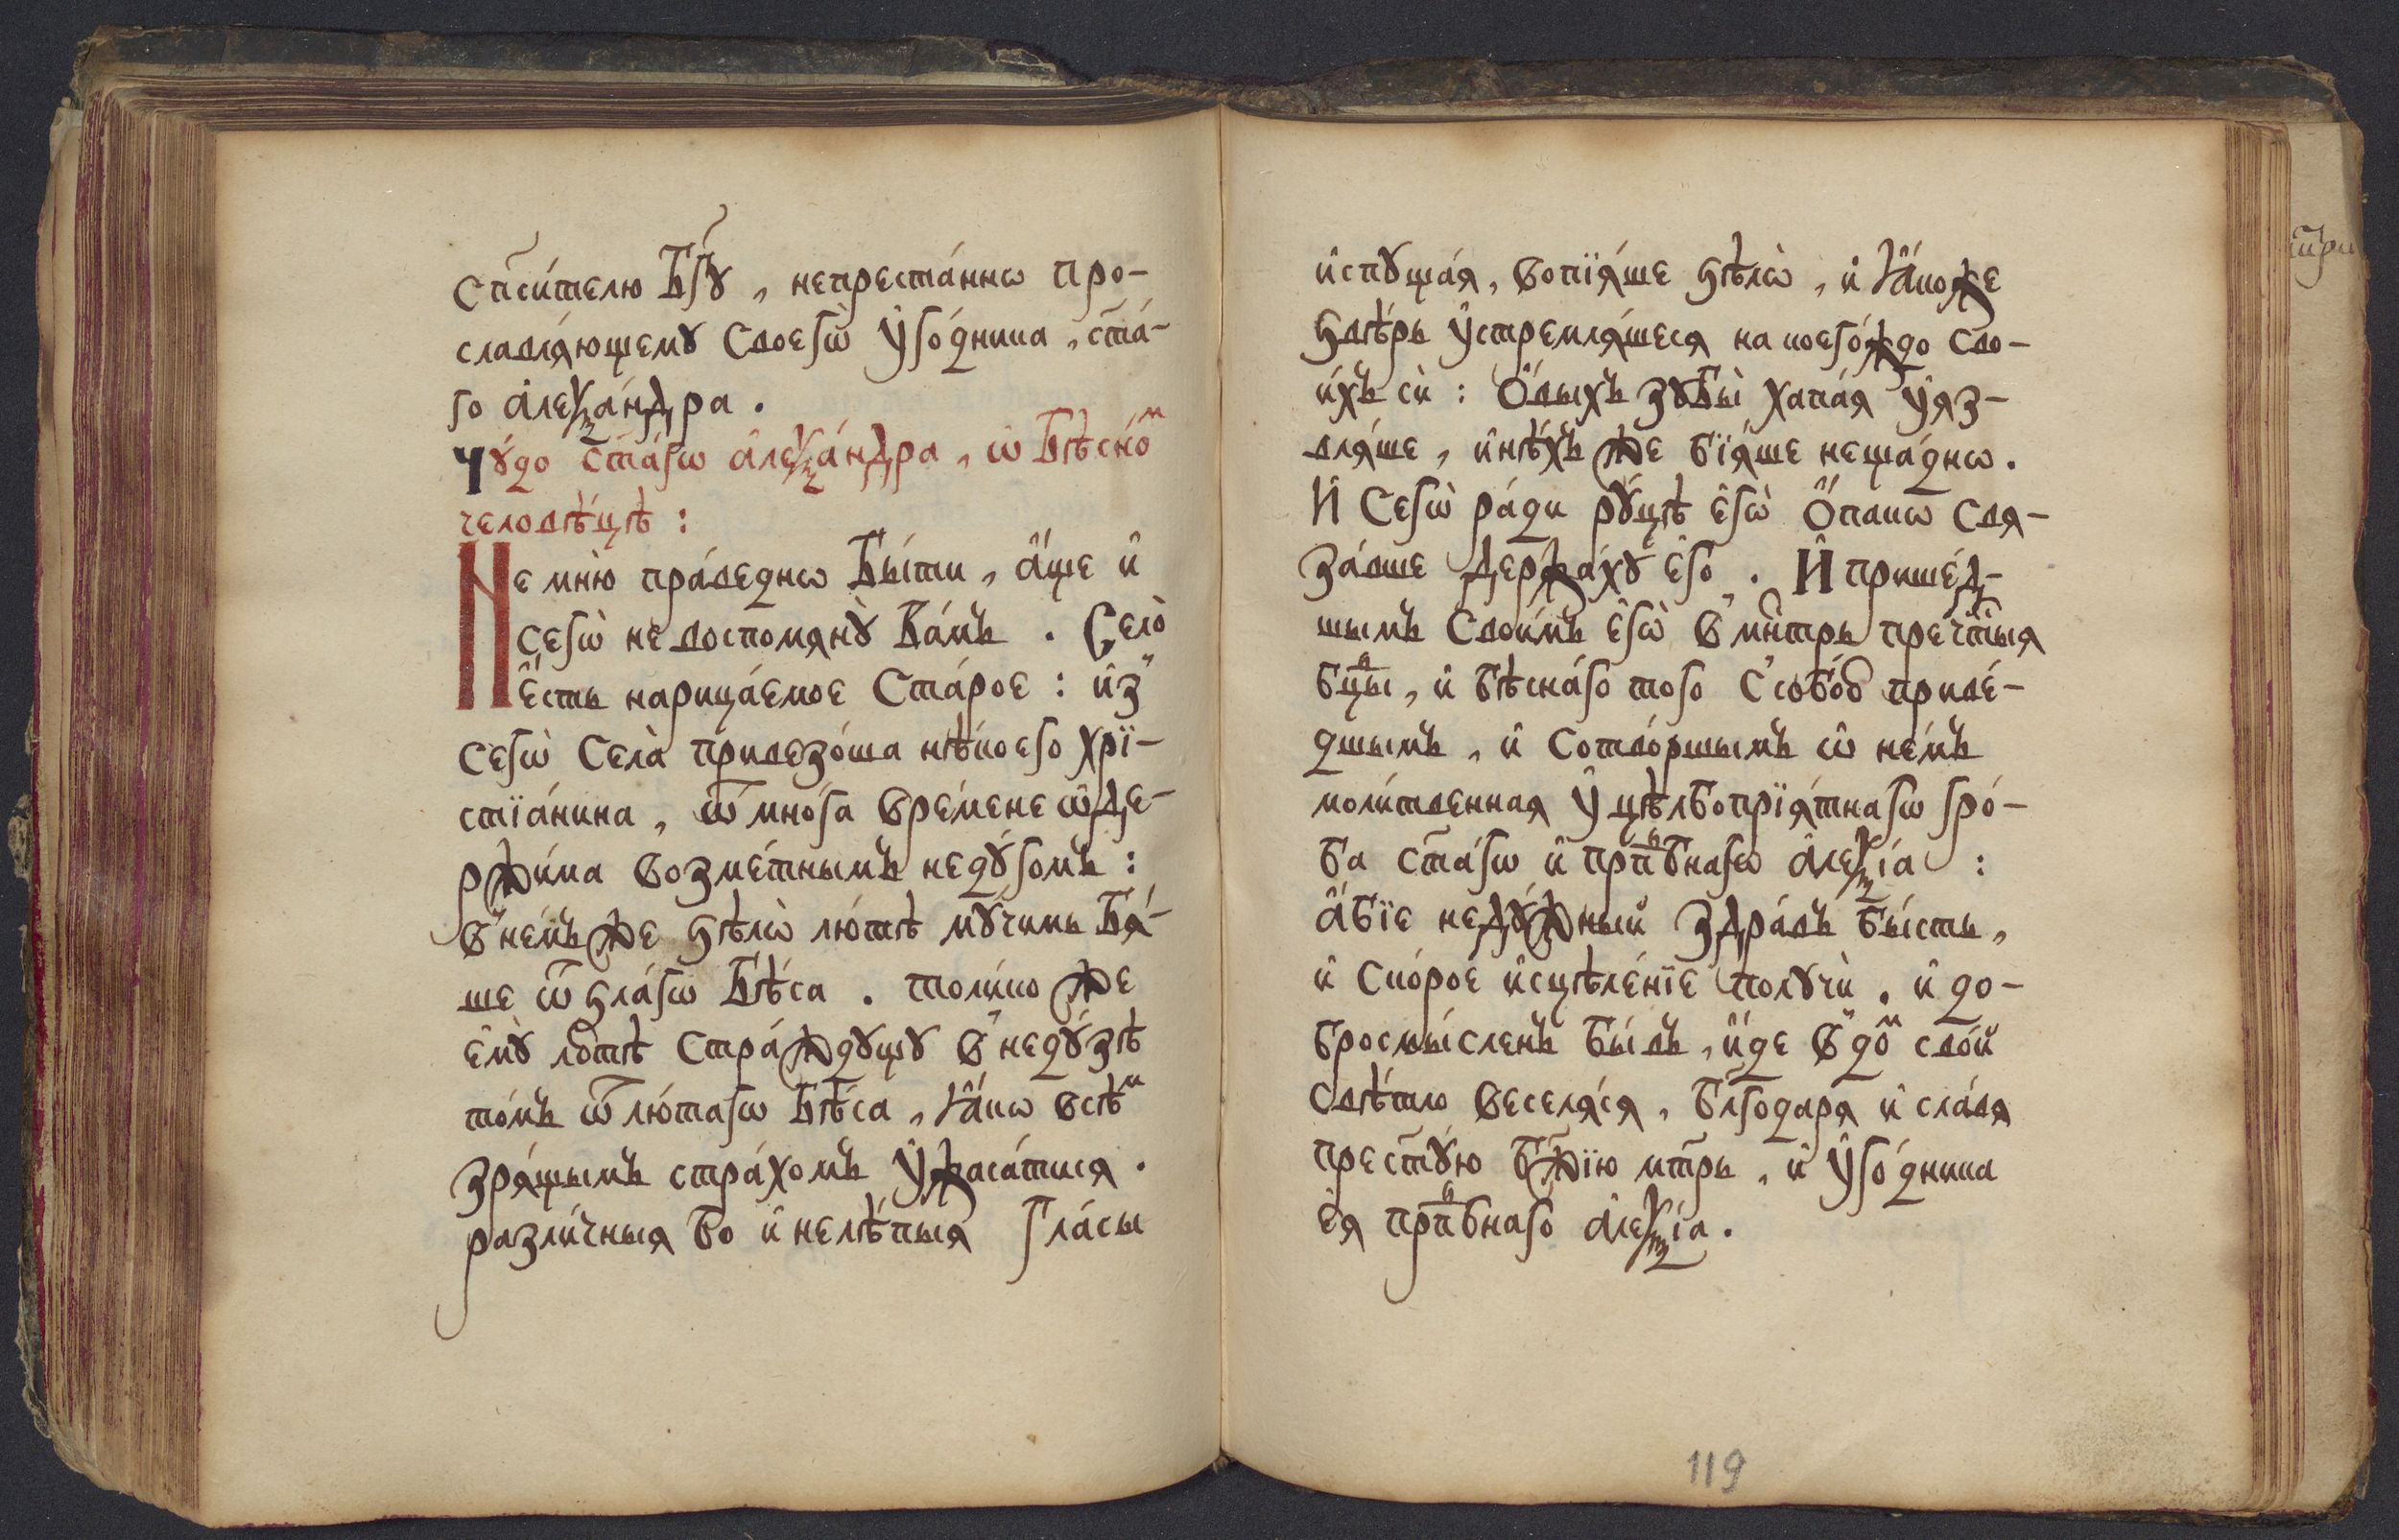 сп҃си́телю Бг҃ꙋ, непреста́ннѡ про-
славлѧ́ющемꙋ своегѡ̀ ᲂу҆го́дника, ст҃а́-
го а҆леѯа́ндра.
Чꙋ́до ст҃а́гѡ а҆леѯа́ндра, ѡ҆ Бѣсно́ⷨ
человѣ́цѣ:
Не мню̀ пра́веднѡ Бы́ти, а҆́ще и҆
сегѡ̀ не воспомѧнꙋ̀ Ва́мъ. Село̀
є҆́сть нарица́емое Ста́рое: и҆з̾
сегѡ̀ Села̀ привезо́ша нѣ́коего хрї-
стїа́нина, ѿ мно́га вре́мене ѡ҆де-
ржи́ма возме́тнымъ недꙋ́гомъ:
в̾ не́мъ же ѕѣлѡ̀ лю́тѣ мꙋ́чимь Бѧ́-
ше ѿ ѕла́гѡ Бѣ́са. толи́кѡ же
є҆мꙋ̀ лю́тѣ стра́ждꙋщꙋ в̾ недꙋ́зѣ
то́мъ ѿ лю́тагѡ Бѣ́са, ꙗ҆́кѡ всѣ́ⷨ
зрѧ́щымъ стра́хомъ ᲂу҆жаса́тисѧ.
разли́чныѧ бо и҆ нелѣ́пыѧ гла́сы
и҆спꙋща́ѧ, вопїѧ́ше ѕѣлѡ̀, и҆ ꙗ҆́коже
ѕвѣ́рь ᲂу҆стремлѧ́шесѧ на коего́ждо сво-
и́хъ сѝ: ѻ҆́выхъ зꙋбы̀ хапа́ѧ ᲂу҆ѧз-
влѧ́ше, и҆нѣ́хъ же бїѧ́ше неща́днѡ.
И҆ Сегѡ̀ ра́ди рꙋ́цѣ є҆гѡ̀ ѻ҆́пакѡ свѧ-
за́вше держа́хꙋ є҆го̀. И҆ прише́д-
шымъ свои́мъ є҆гѡ̀ в̾ мн҃трь преч҃тыѧ
бц҃ы, и҆ бѣсна́го того С̾ собо́ю приве́-
дшымъ, и҆ сотво́ршымъ ѡ҆ не́мъ
моли́твеннаѧ ᲂу҆ цѣлбопрїѧ́тнагѡ гро́-
ба ст҃а́гѡ и҆ прпⷣбнагѡ а҆леѯі́а:
а҆́бїе недꙋ́жный здра́въ бы́сть,
и҆ ско́рое и҆сцѣле́нїе полꙋчѝ. и҆ до-
бросмы́сленъ бы́въ, и҆́де в̾ до́ⷨ сво́й
свѣ́тлѡ веселѧ́сѧ, бл҃годарѧ и҆ сла́вѧ
прест҃ꙋ́ю бж҃їю мт҃рь, и҆ ᲂу҆го́дника
є҆ѧ̀ прпⷣбнаго а҆леѯі́а.
119